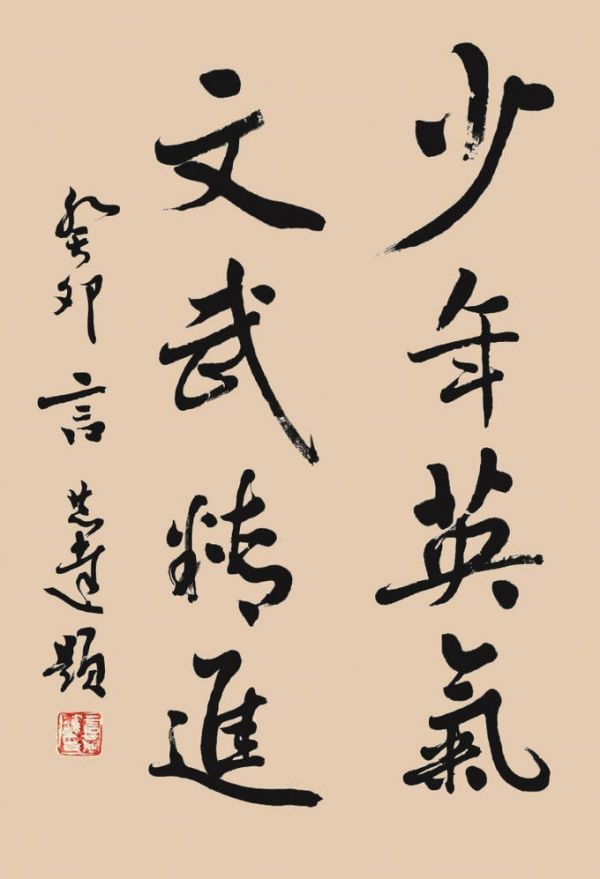 少年英氣
文武精進
癸卯 言恭達題